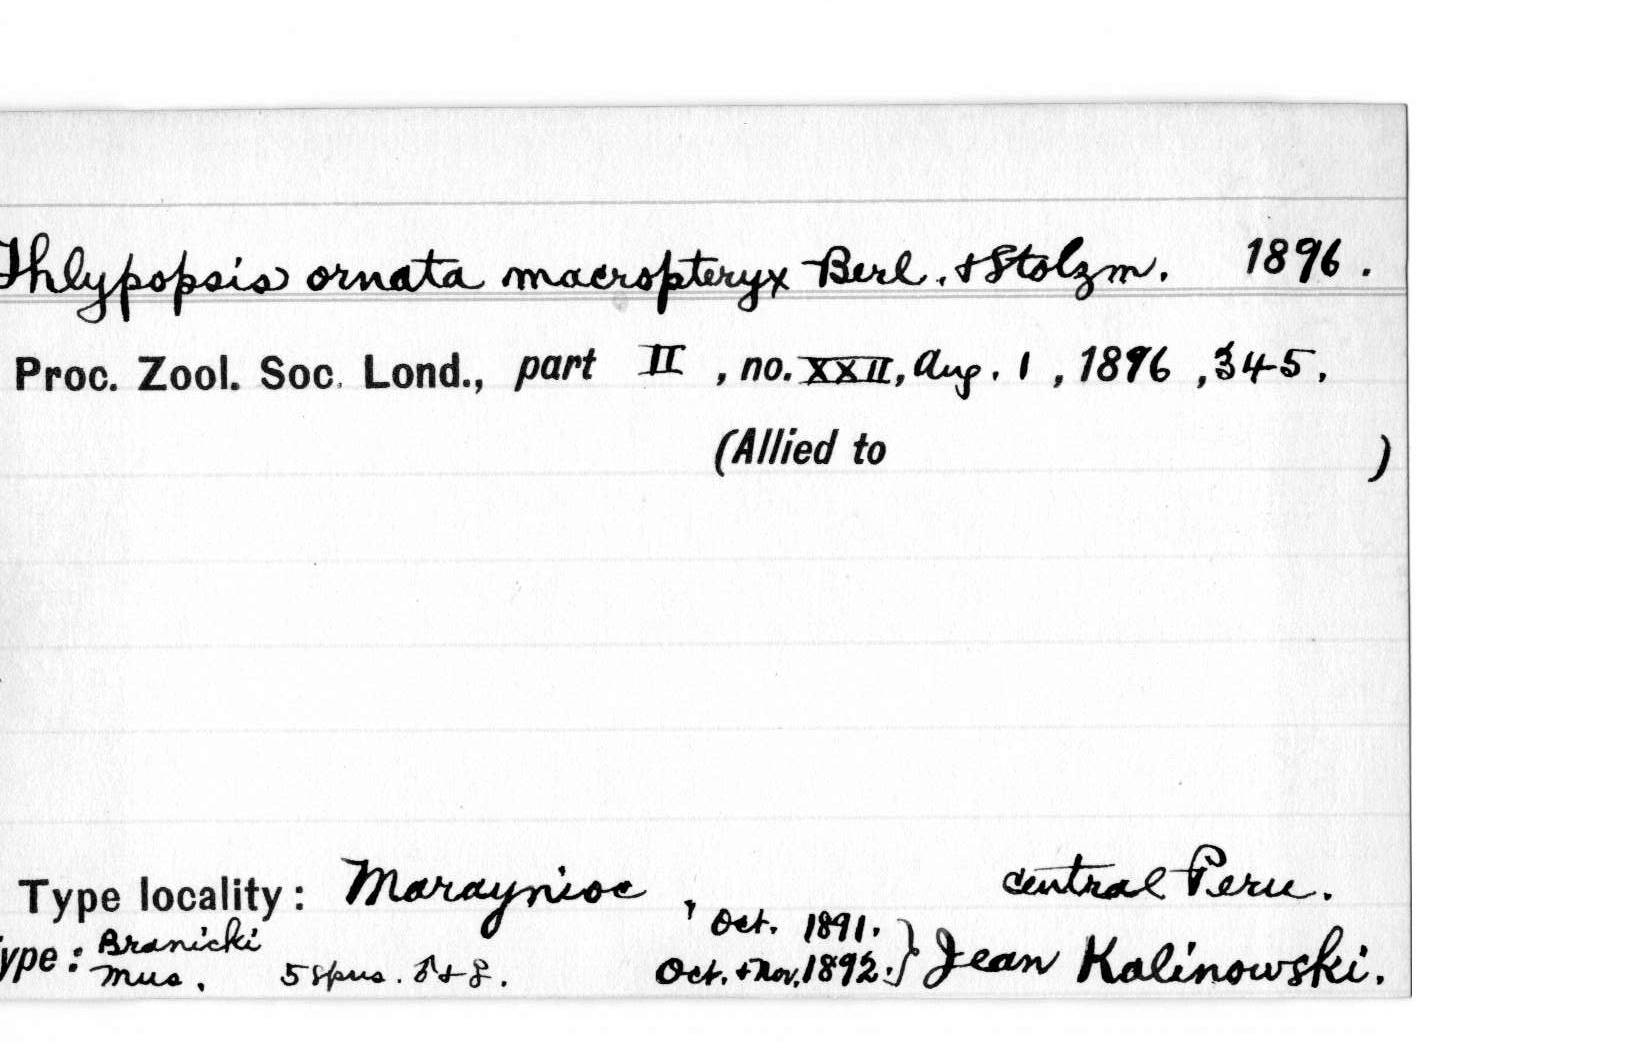 Thlypopsis ornata macropteryx Berl. & Stolzm. 1896.
Proc. Zool. Soc. Lond., part II, no. XXII, Aug. 1, 1896, 345.
(Allied to )
Type locality: Maraynioc, central Peru.
ype: Branicki Mus. 5 spns. ♂ + ♀. Oct. 1891. Oct. + Nov. 1892. } Jean Kalinowski.